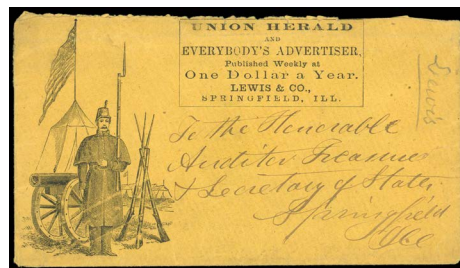 UNION HERALD
AND
EVERYBODY'S ADVERTISER,
Published Weekly at
One Dollar a Year.
LEWIS & CO.,
SPRINGFIELD, ILL.
To the Honorable
Auditor Treasurer
& Secretary of State
Springfield
Ills